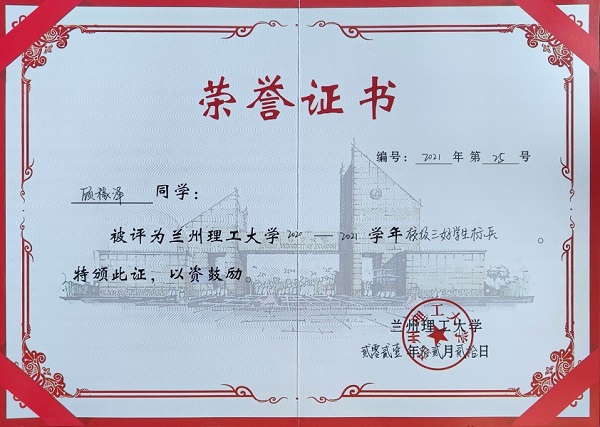 荣誉证书
编号：2021年第25号
顾稼泽 同学：
被评为兰州理工大学2020—2021学年校级三好学生标兵。
特颁此证，以资鼓励。
兰州理工大学
贰零贰壹年拾贰月贰拾日